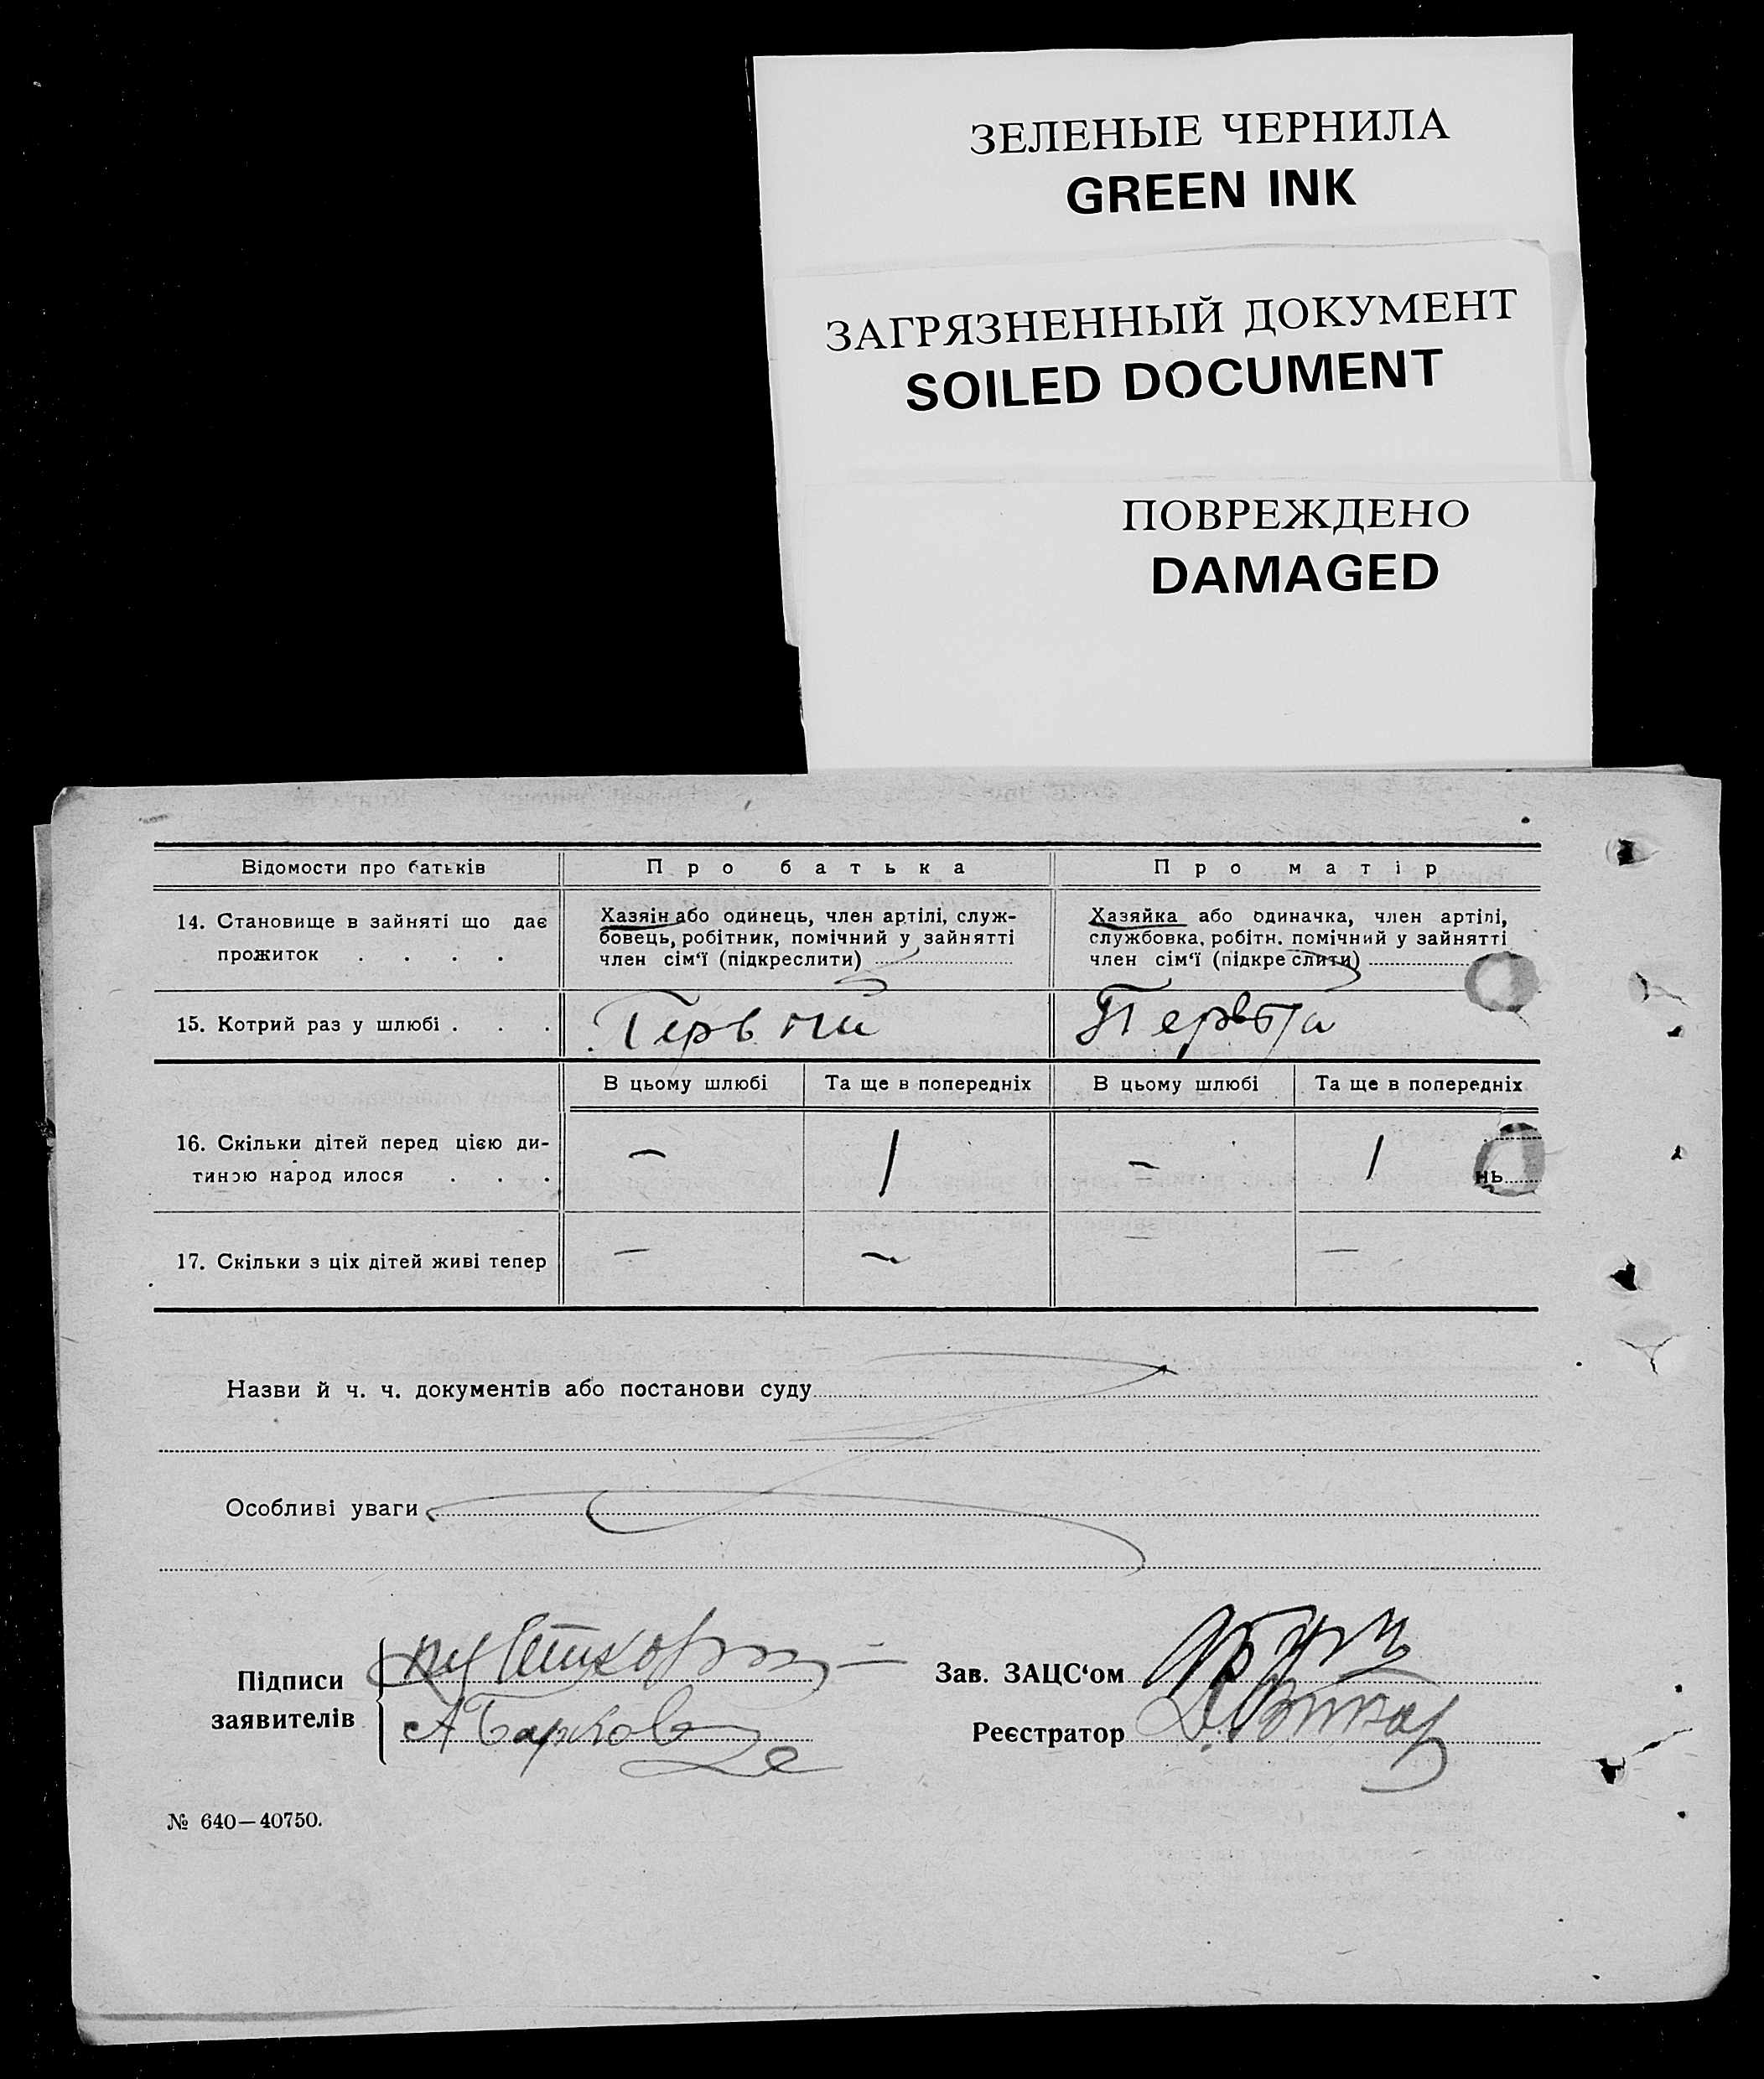 ЗЕЛЕНЫЕ ЧЕРНИЛА
GREEN INK
ЗАГРЯЗНЕННЫЙ ДОКУМЕНТ
SOILED DOCUMENT
ПОВРЕЖДЕНО
DAMAGED
Відомости про батьків
Про батька
Про матір
14. Становище в зайняті що дає
прожиток . . . .
Хазяін або одинець, член артілі, служ-
бовець, робітник, помічний у зайнятті
член сім‘ї (підкреслити)
Хазяйка або одиначка, член артілі,
службовка, робітн. помічний у зайнятті
член сім‘ї (підкреслити)
15. Котрий раз у шлюбі . . .
Первый
Первая
В цьому шлюбі
Та ще в попередніх
В цьому шлюбі
Та ще в попередніх
16. Скільки дітей перед цією ди-
тиною народилося . . .
– 1 – 1
нь
17. Скільки з ціх дітей живі тепер
– – – –
Назви й ч. ч. документів або постанови суду
Особливі уваги
Підписи
заявителів
А Барков
Зав. ЗАЦС‘ом
Реєстратор
№ 640—40750.